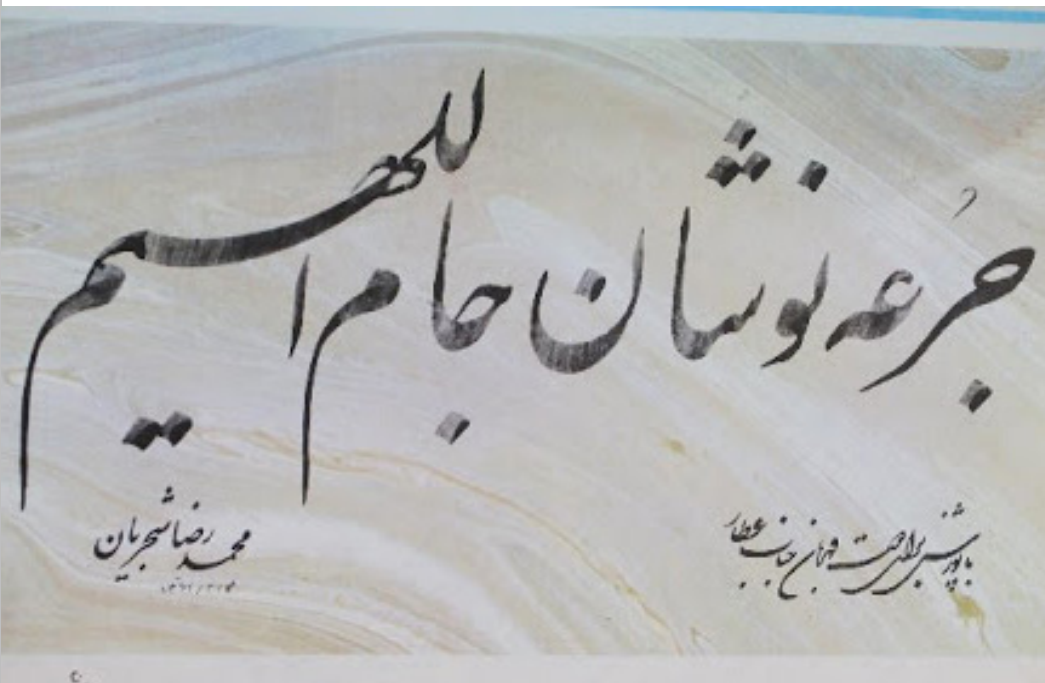 جُرعه نوشان جام اللهیم
با پوزش برای حضرت جناب عطار
محمدرضا شجریان